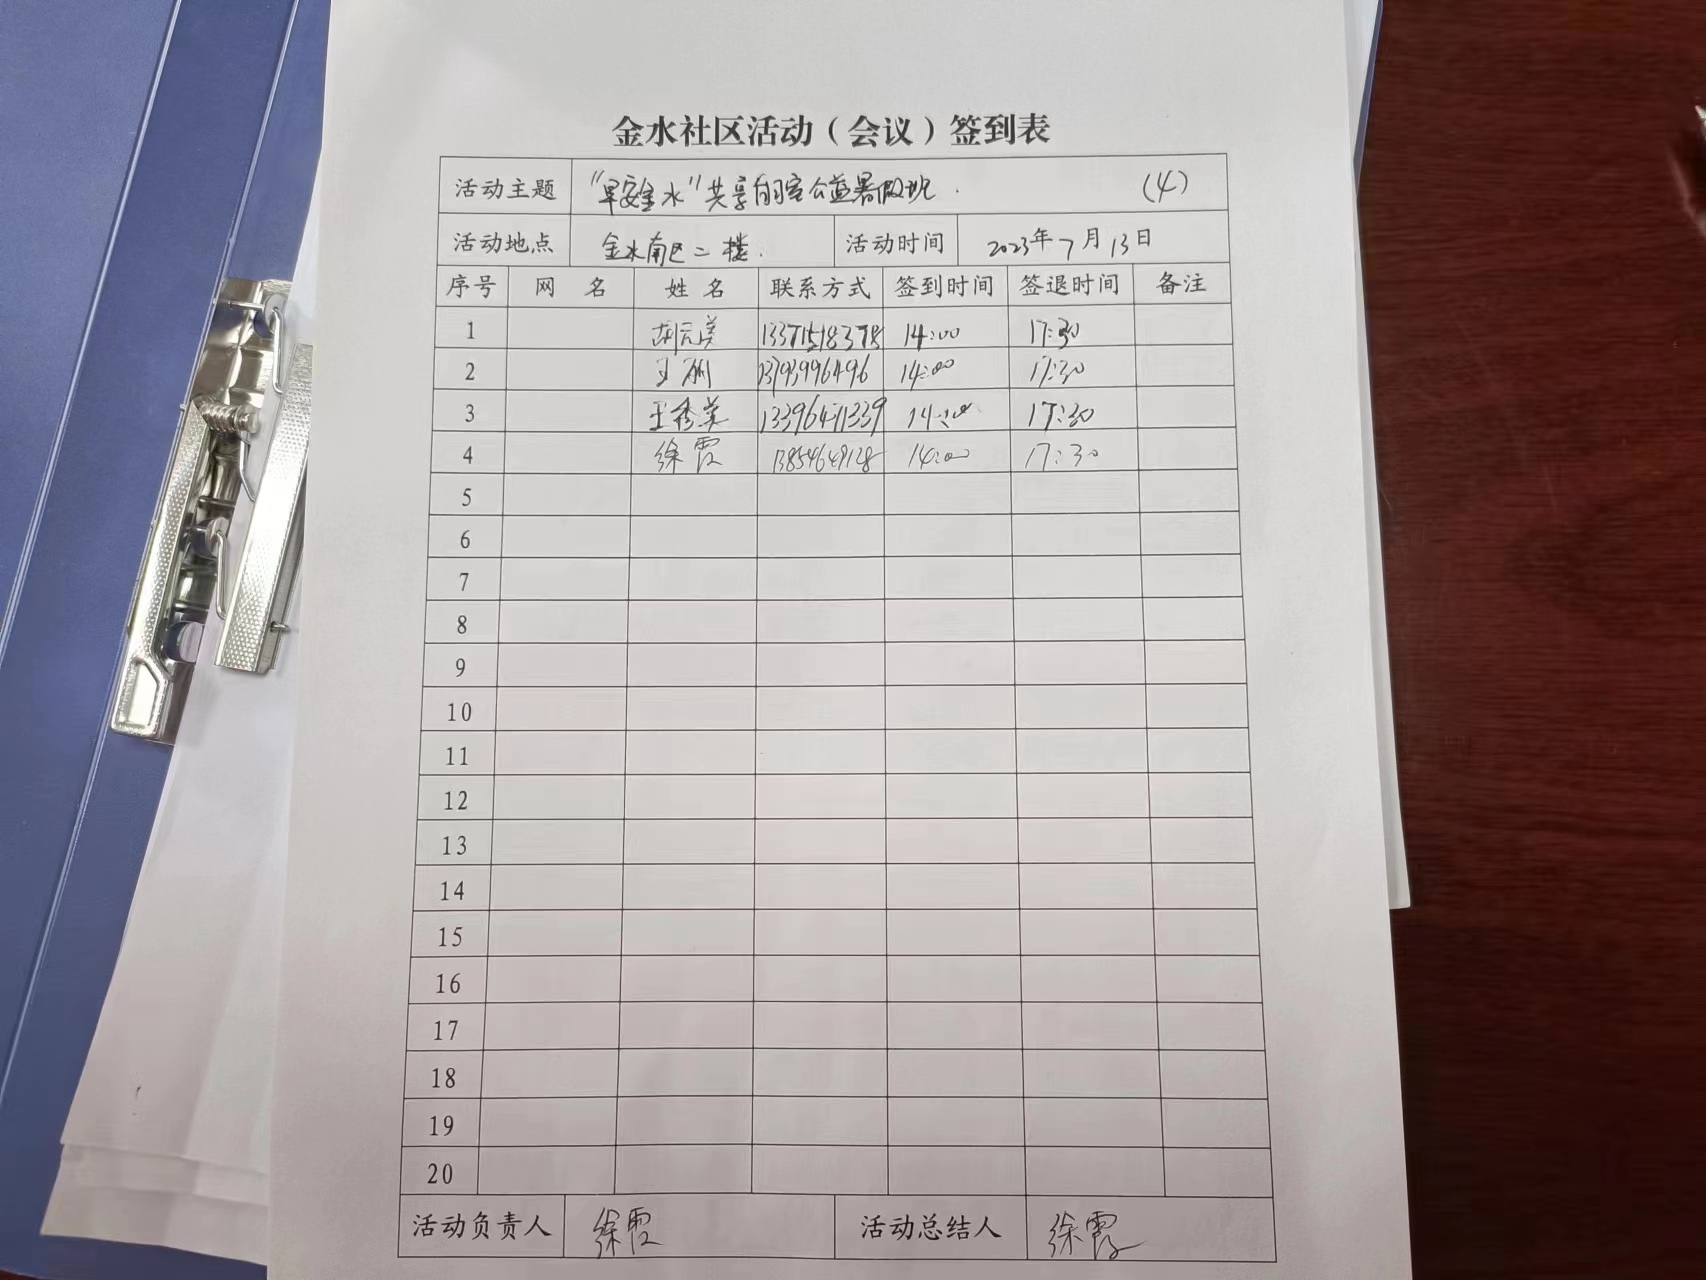 金水社区活动（会议）签到表
活动主题 "早安金水"共享自习室公益暑假班. (4)
活动地点 金水南区二楼. 活动时间 2023年7月13日
序号 网 名 姓 名 联系方式 签到时间 签退时间 备注
1 胡元美 13371518378 14:00 17:30
2 王 13793996496 14:00 17:30
3 王秀英 13396471339 14:00 17:30
4 徐霞 13854649128 14:00 17:30
5
6
7
8
9
10
11
12
13
14
15
16
17
18
19
20
活动负责人 徐霞 活动总结人 徐霞